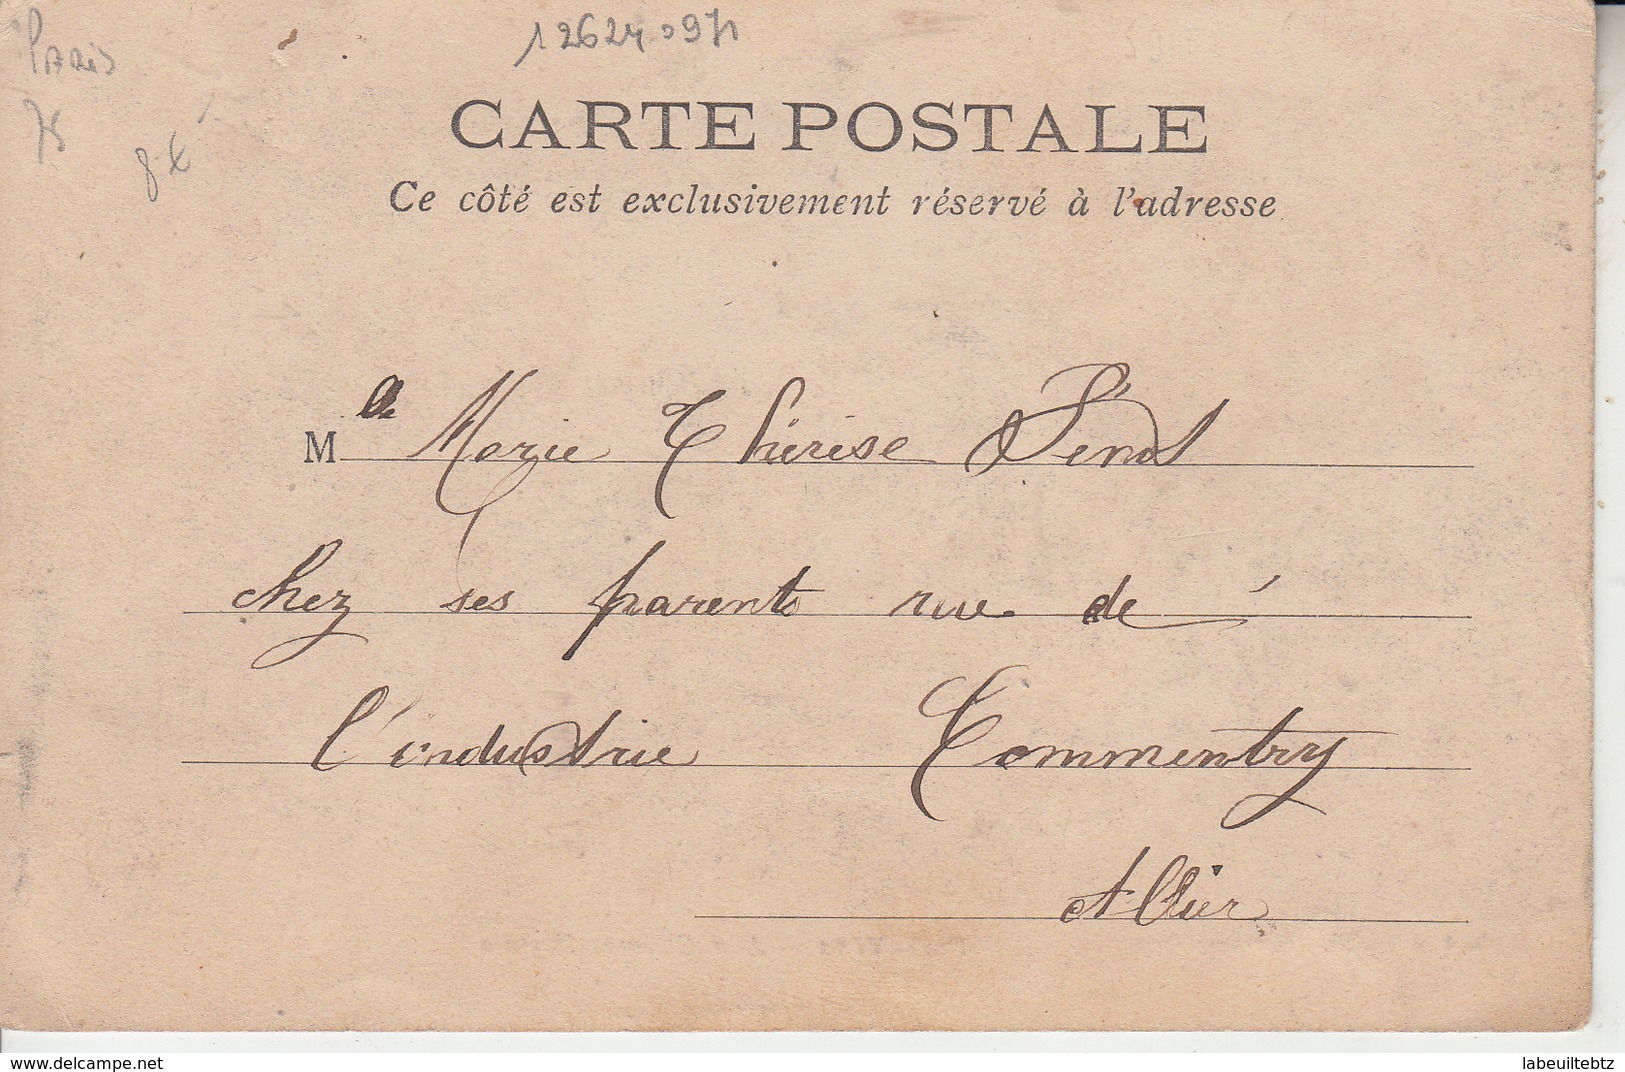 Paris
75
8 €
126240971
CARTE POSTALE
Ce côté est exclusivement réservé à l'adresse
M Marie Thérèse
chez ses parents rue de
l'industrie Commentry
Allier
www.delcampe.net
labeuiltebtz